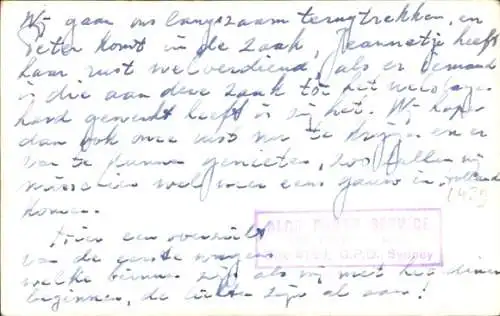 Wij gaan ons langszaam terugtrekken, en
Peter komt in de zaak, Jeannetje heeft
haar rust welverdiend, als er iemand
is die aan deze zaak tot het
hard gewerkt heeft is zij het. Wij hopen
dan ook onze rust nu te krijgen en er
van te kunnen genieten, zoo zullen wij
misschien wel weer eens gauw in Holland
komen.
Hier een overzicht
van de eerste wagens
welke binnen zijn als wij met het
beginnen, de lichten zijn al aan!
SERVICE
G.P.O. Sydney